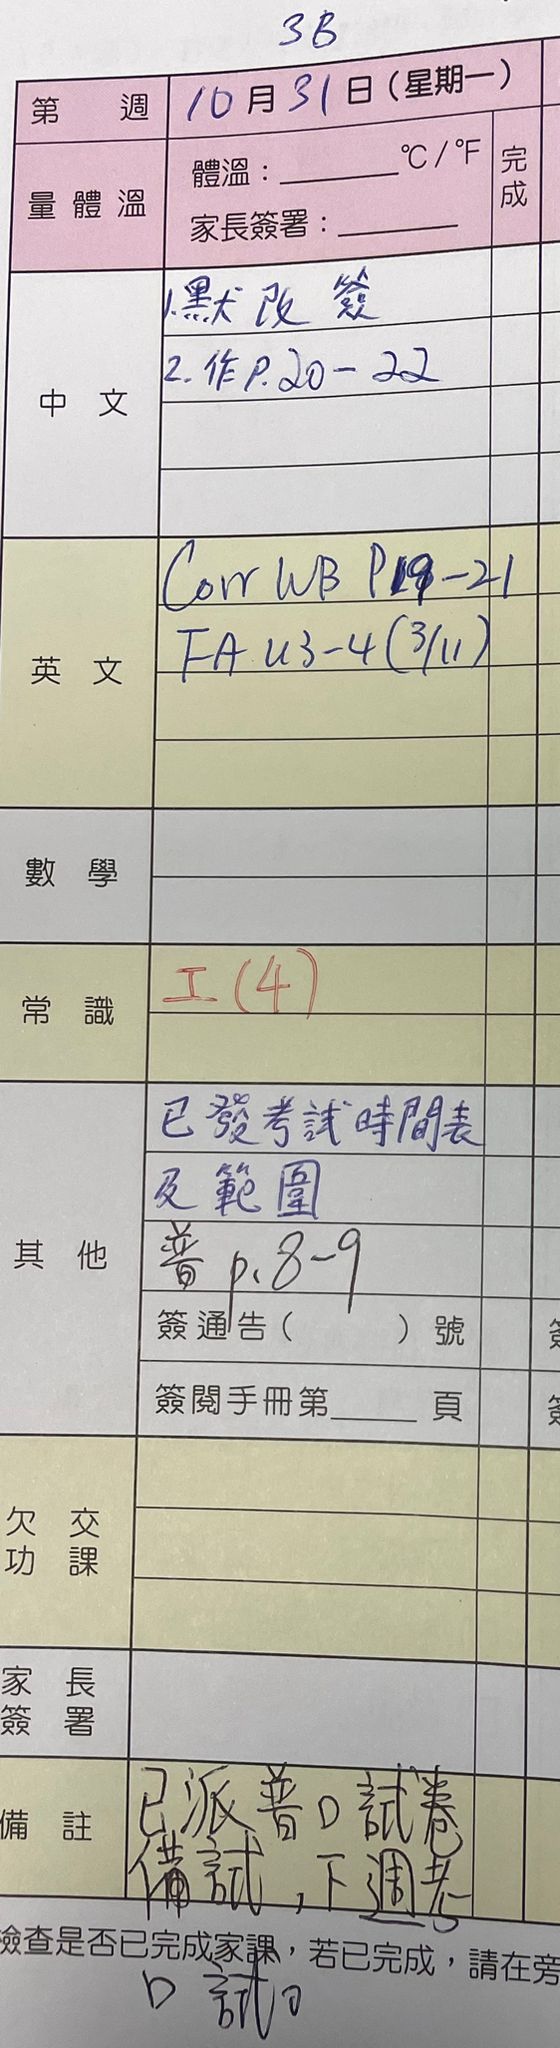 3B
第 週 10月31日(星期一)
量體溫 體溫:______℃/℉ 完成
家長簽署:______
中文 1.默改簽
2.作P.20-22
英文 Corr WB P19-21
FA U3-4(3/11)
數學
常識 工(4)
其他 已發考試時間表
及範圍
普p.8-9
簽通告( )號
簽閱手冊第____頁
欠交功課
家長簽署
備註 已派普口試卷
備試,下週考
檢查是否已完成家課,若已完成,請在旁
口試。